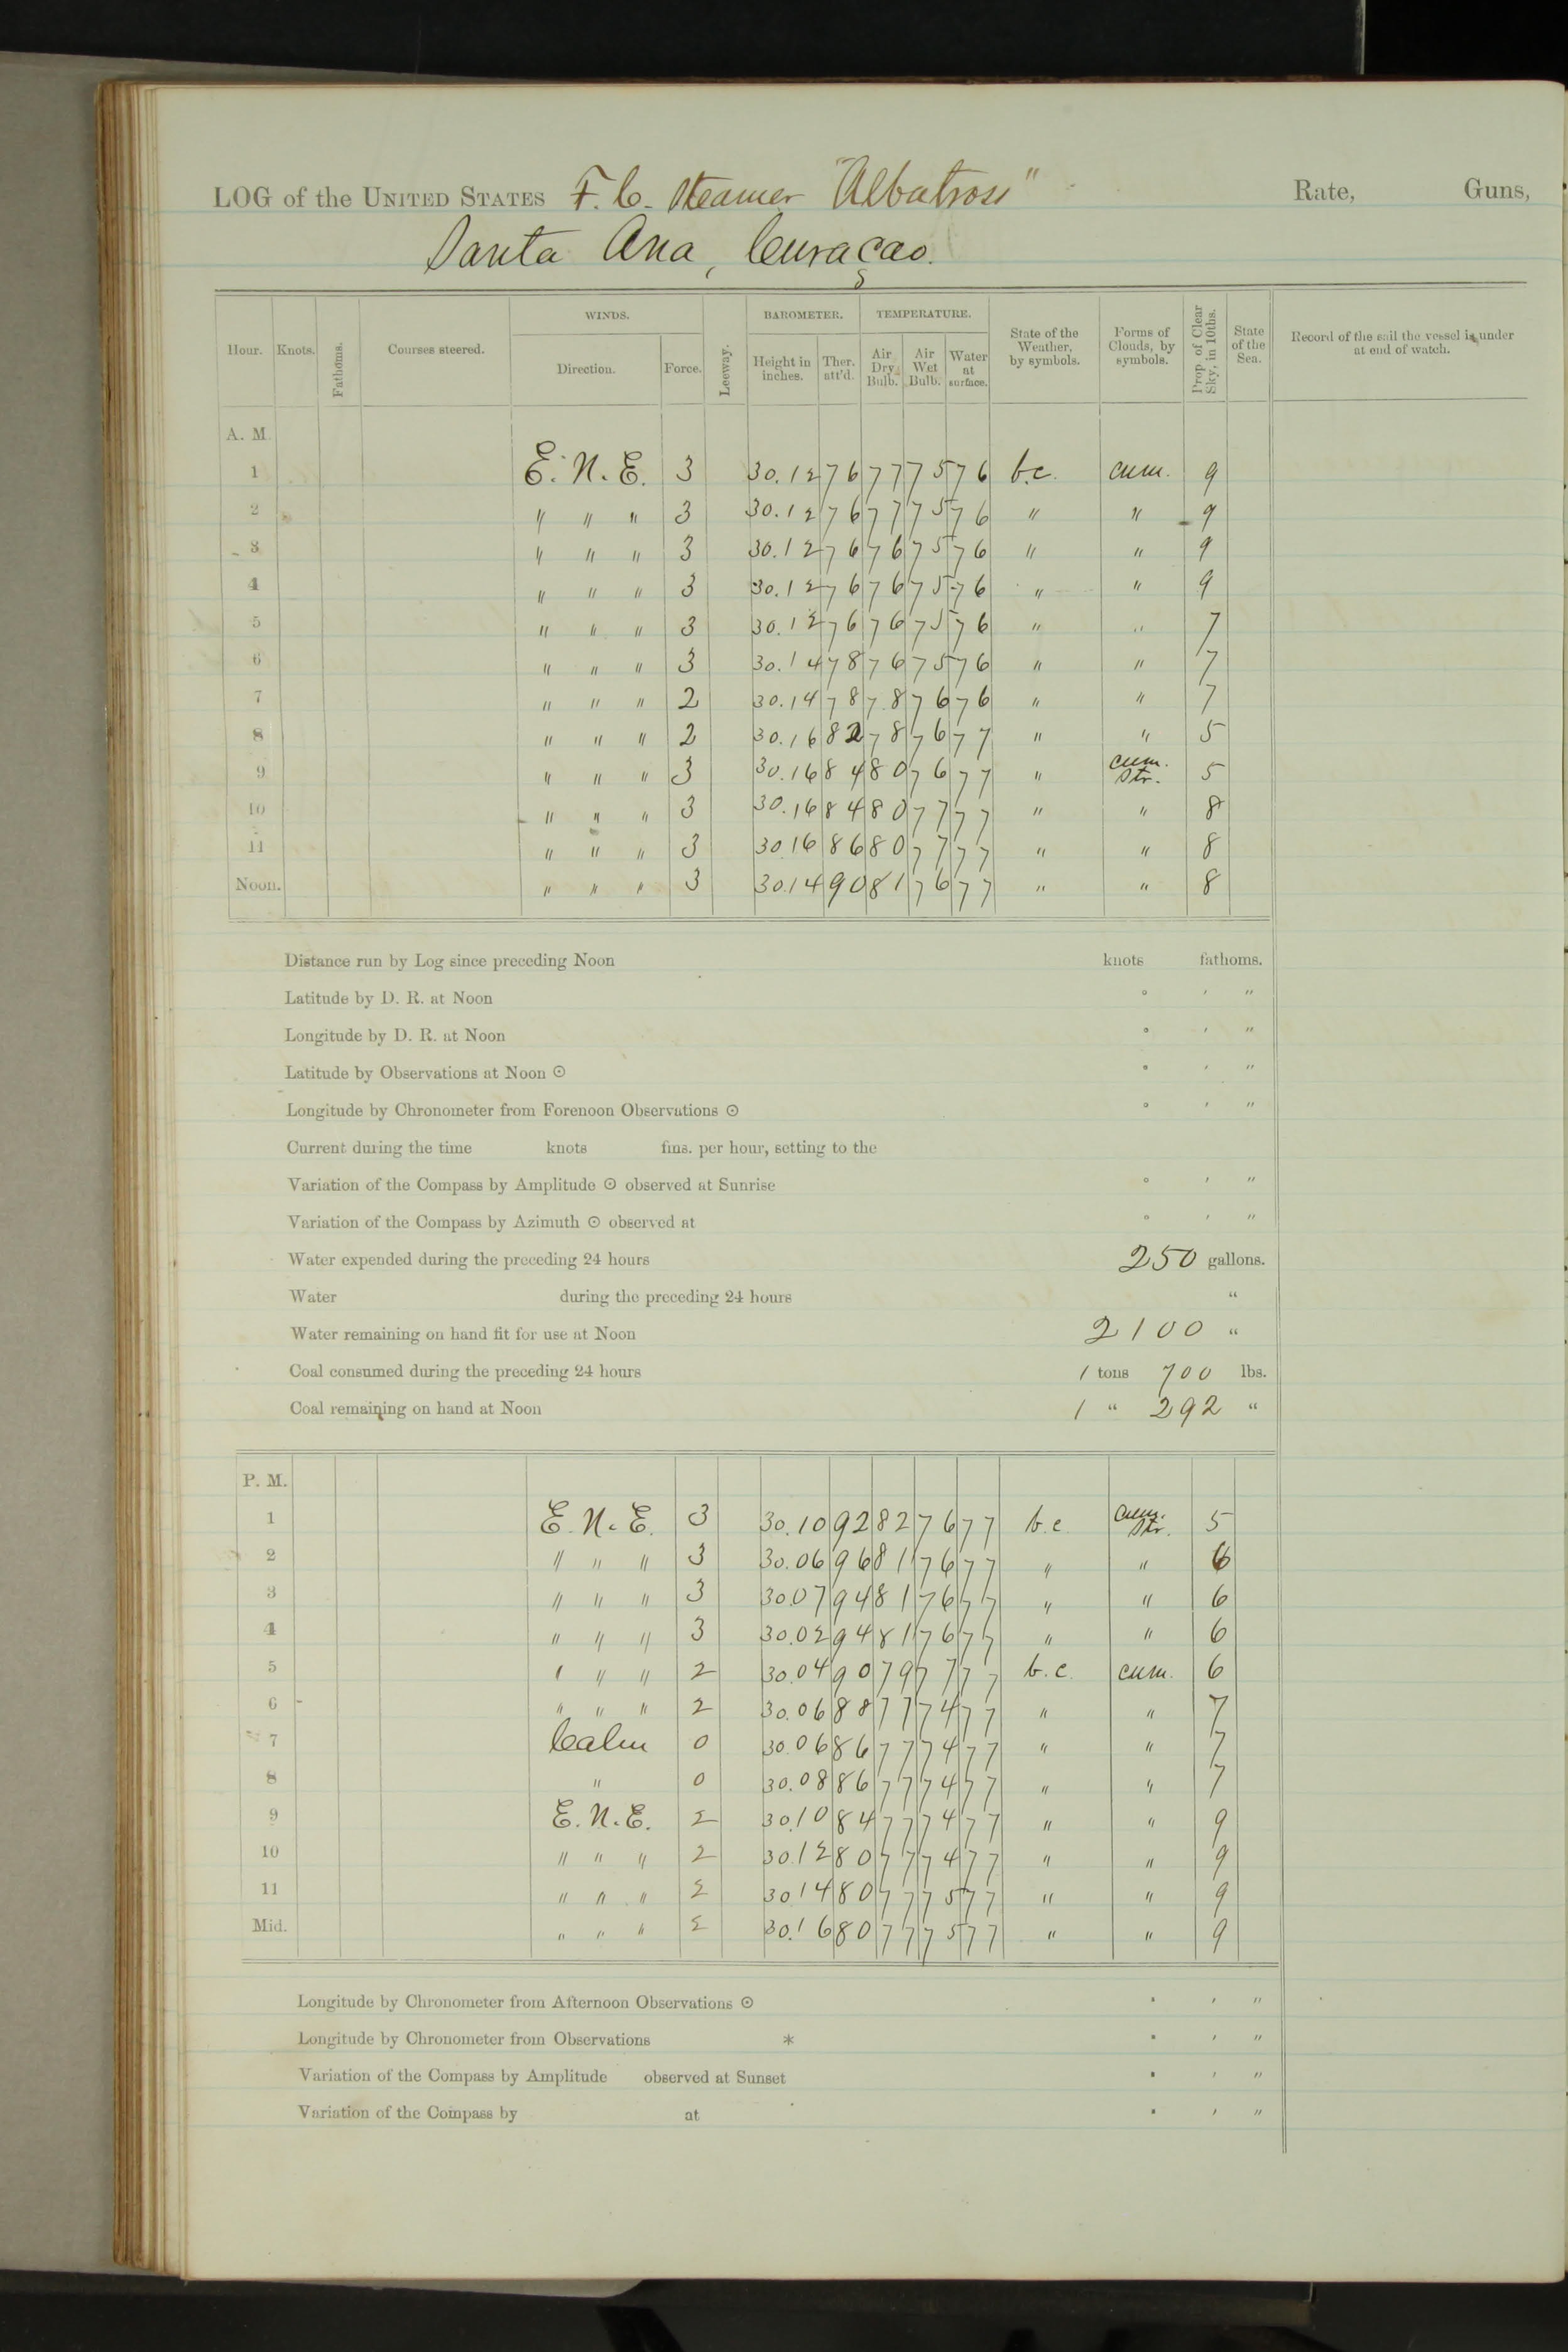 LOG of the UNITED STATES F. C. Steamer "Albatross" Rate, Guns,
Santa Ana, Curaçao.
Hour. Knots. Fathoms. Courses steered. WINDS. Direction. Force. Leeway. BAROMETER. Height in inches. Ther. att'd. TEMPERATURE. Air Dry Bulb. Air Wet Bulb. Water at surface. State of the Weather, by symbols. Forms of Clouds, by symbols. Prop. of Clear Sky, in 10ths. State of the Sea. Record of the sail the vessel is under at end of watch.
A. M.
1 E. N. E. 3 30.12 76 77 75 76 b.c. cum. 9
2 " " " 3 30.12 76 77 75 76 " " 9
3 " " " 3 30.12 76 76 75 76 " " 9
4 " " " 3 30.12 76 76 75 76 " " 9
5 " " " 3 30.12 76 76 75 76 " " 7
6 " " " 3 30.14 78 76 75 76 " " 7
7 " " " 2 30.14 78 78 76 76 " " 7
8 " " " 2 30.16 82 78 76 77 " " 5
9 " " " 3 30.16 84 80 76 77 " cum. str. 5
10 " " " 3 30.16 84 80 77 77 " " 8
11 " " " 3 30 16 86 80 77 77 " " 8
Noon. " " " 3 30.14 90 81 76 77 " " 8
Distance run by Log since preceding Noon knots fathoms.
Latitude by D. R. at Noon ° ′ ″
Longitude by D. R. at Noon ° ′ ″
Latitude by Observations at Noon ⊙ ° ′ ″
Longitude by Chronometer from Forenoon Observations ⊙ ° ′ ″
Current during the time knots fms. per hour, setting to the
Variation of the Compass by Amplitude ⊙ observed at Sunrise ° ′ ″
Variation of the Compass by Azimuth ⊙ observed at ° ′ ″
Water expended during the preceding 24 hours 250 gallons.
Water during the preceding 24 hours "
Water remaining on hand fit for use at Noon 2100 "
Coal consumed during the preceding 24 hours 1 tons 700 lbs.
Coal remaining on hand at Noon 1 " 292 "
P. M.
1 E. N. E. 3 30.10 92 82 76 77 b.c. cum. str. 5
2 " " " 3 30.06 96 81 76 77 " " 6
3 " " " 3 30.07 94 81 76 77 " " 6
4 " " " 3 30.02 94 81 76 77 " " 6
5 " " " 2 30.04 90 79 77 77 b.c. cum. 6
6 " " " 2 30.06 88 77 74 77 " " 7
7 Calm 0 30.06 86 77 74 77 " " 7
8 " 0 30.08 86 77 74 77 " " 7
9 E. N. E. 2 30.10 84 77 74 77 " " 9
10 " " " 2 30.12 80 77 74 77 " " 9
11 " " " 2 30 14 80 77 75 77 " " 9
Mid. " " " 2 30.16 80 77 75 77 " " 9
Longitude by Chronometer from Afternoon Observations ⊙ ° ′ ″
Longitude by Chronometer from Observations * ° ′ ″
Variation of the Compass by Amplitude observed at Sunset ° ′ ″
Variation of the Compass by at ° ′ ″